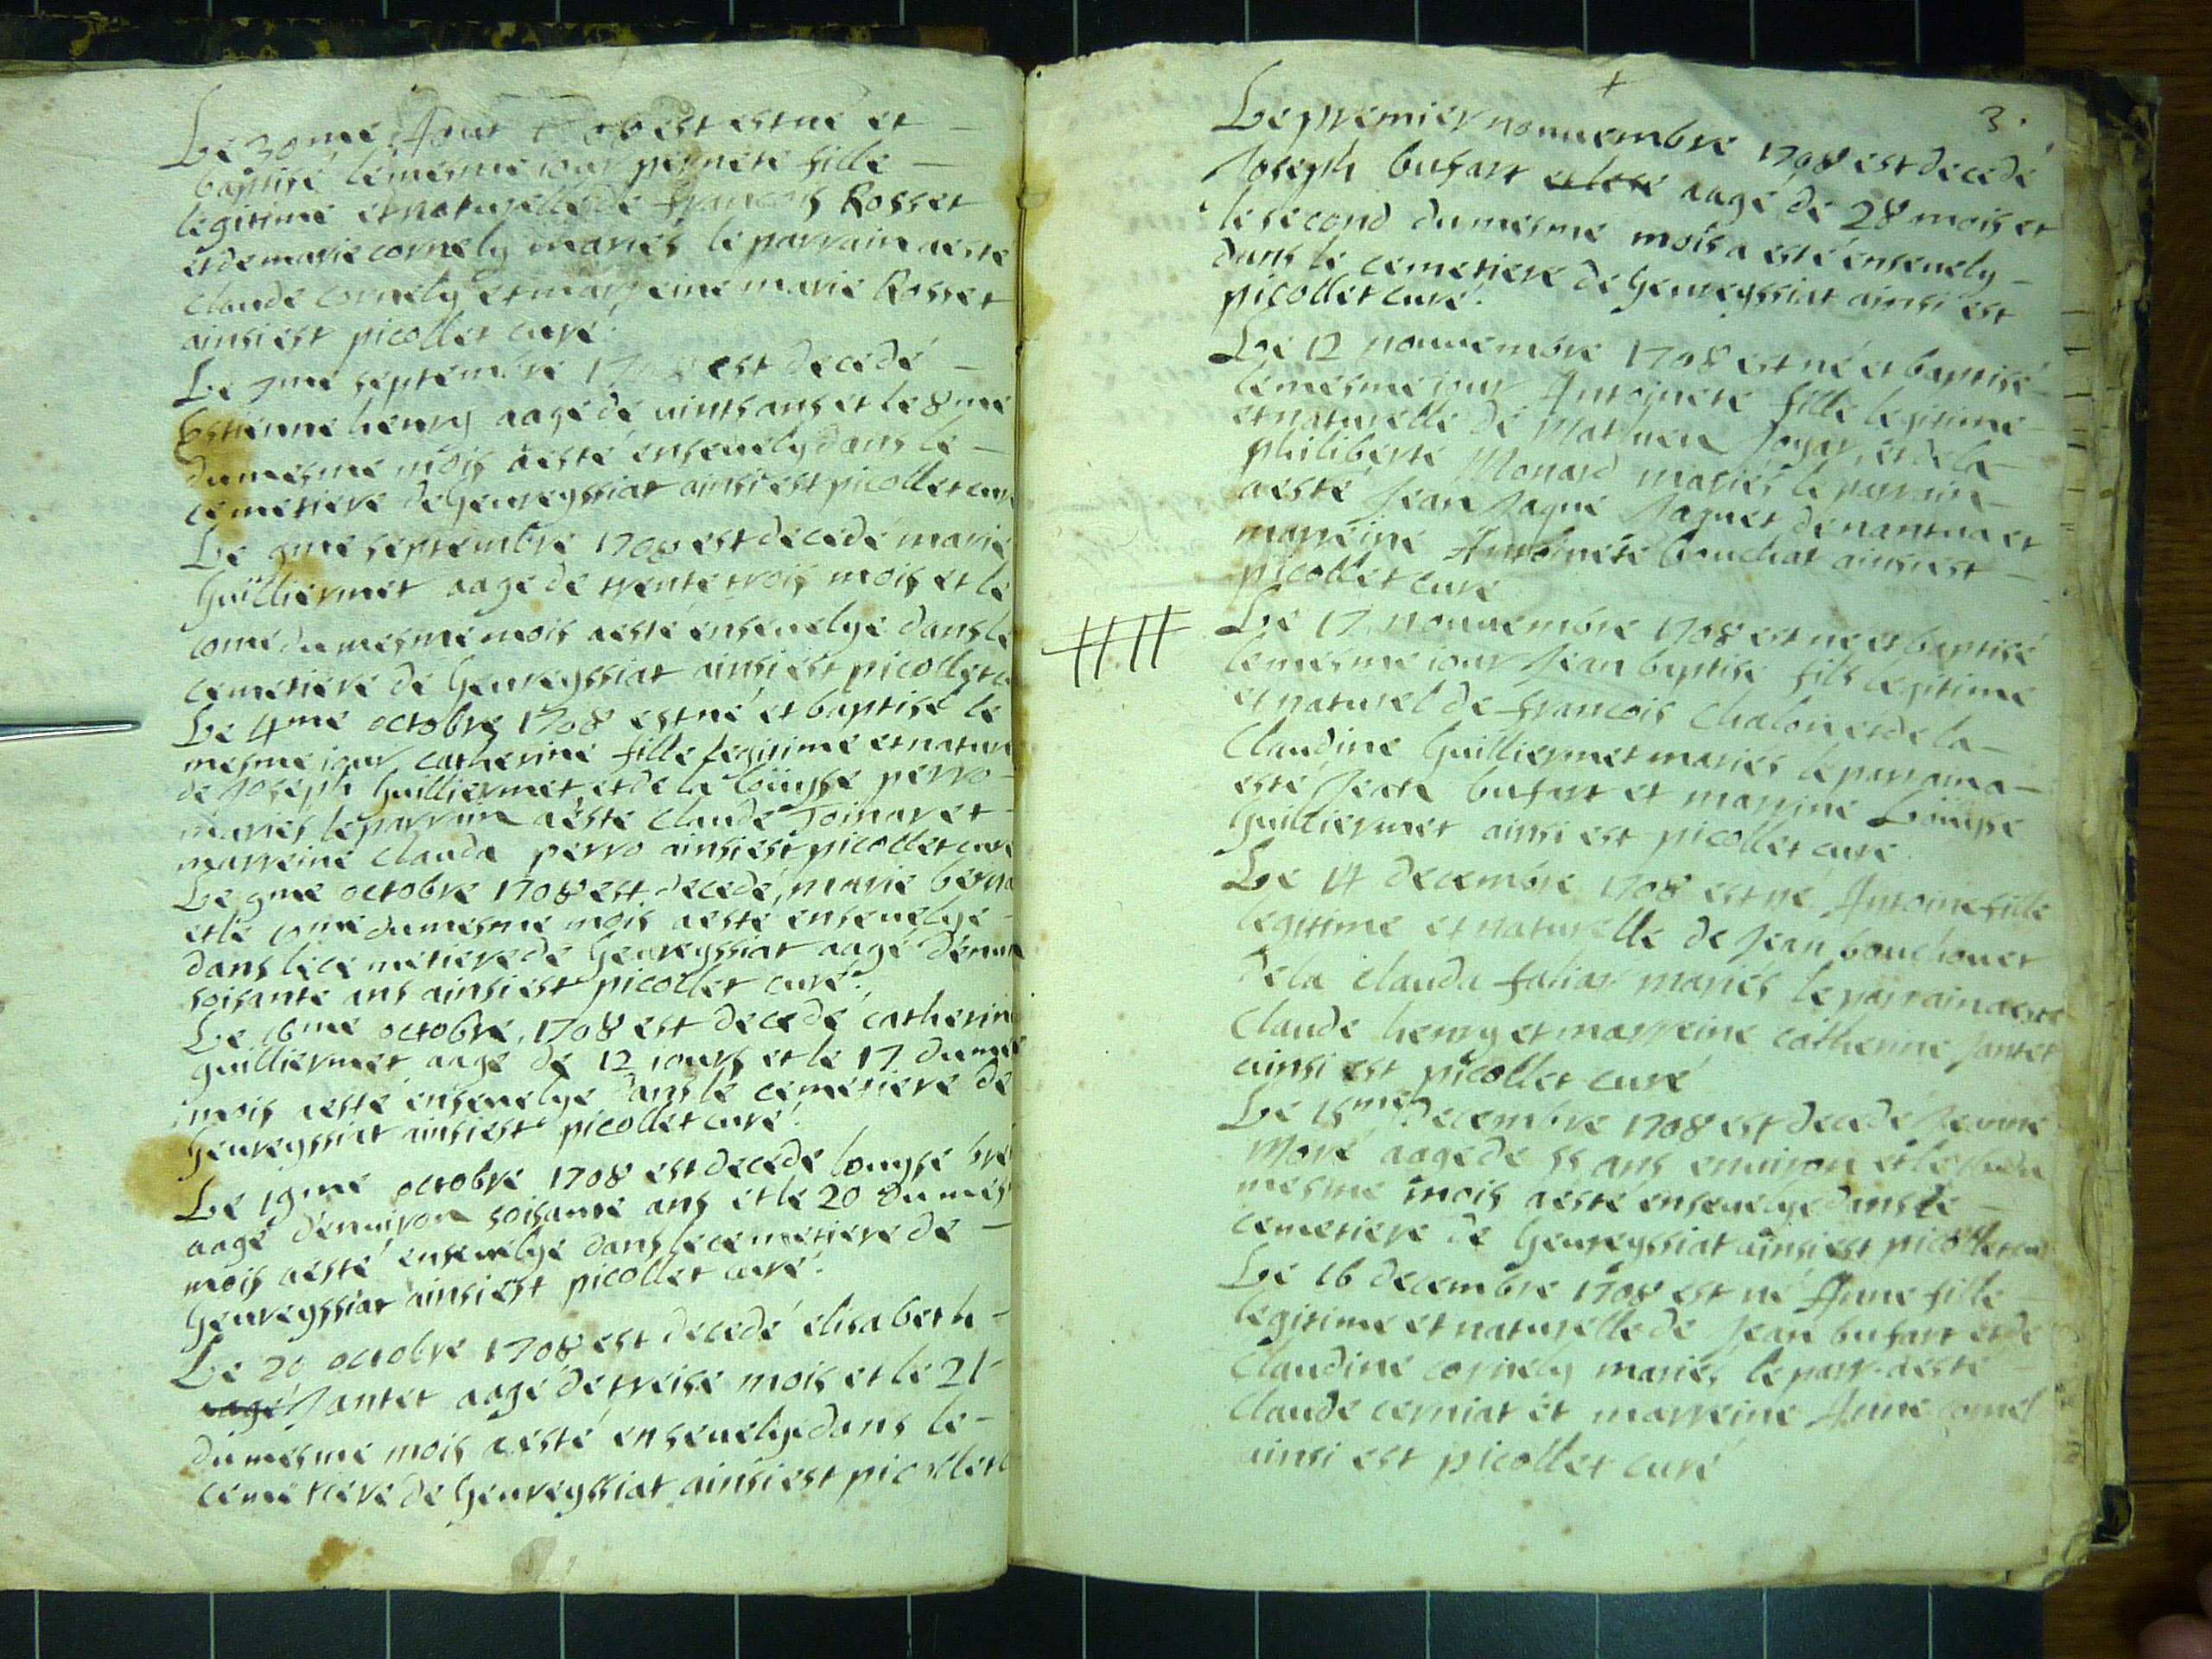 Le 30me Aout est est né et
baptisé le mesme iour pernete fille
legitime et naturelle de françois Rosset
et de marie cornely mariés le parrain a esté
claude cornely et marreine marie Rosset
ainsi est picollet curé
Le 7me septembre est decedé
Estienne henry aagé de uints ans et le 8me
du mesme mois a esté enseuely dans le
cemetiere de Geureyssiat ainsi est picollet cure
Le 9me septembre 1708 est decedé marie
Guilliermet aagé de trente trois mois et le
10me du mesme mois a esté enseuelye dans le
cemetiere de Geureyssiat ainsi est picollet c
Le 4me octobre 1708 est né et baptisé le
mesme iour catherine fille legitime et natur
de Joseph Guilliermet et de la Loüyse perro
mariés le parrain a esté claude Joinar et
marreine clauda perro ainsi est picollet cure
Le 9me octobre 1708 est decedé marie
et le 10me du mesme mois a esté enseuelye
dans le cemetiere de Geureyssiat aagé denui
soisante ans ainsi est picollet curé
Le 16me octobre 1708 est decedé catherine
guilliermet aagé de 12 iours et le 17 du me
mois a esté enseuelye dans le cemetiere de
Geureyssiat ainsi est picollet curé
Le 19me octobre 1708 est decedé louyse
aagé denuiron soisante ans et le 20 du mes
mois a esté enseuelye dans le cemetiere de
Geureyssiat ainsi est picollet curé
Le 20 octobre 1708 est decedé elisabeth
aagé Jantet aagé de treise mois et le 21
du mesme mois a esté enseuelye dans le
cemetiere de Geureyssiat ainsi est picollet c
3.
Le premier nouuembre 1708 est decedé
Joseph bufart et le aagé de 28 mois et
le second du mesme mois a esté enseuely
dans le cemetiere de Geureyssiat ainsi est
picollet curé
Le 12 nouuembre 1708 est né et baptisé
le mesme iour Antoinete fille legitime
et naturelle de Mathieu et de la
philiberte Monard mariés le parrain
a esté Jean Jaque Jaquet de nantua et
marreine Antoinete bouchat ainsi est
picollet curé
Le 17 nouuembre 1708 est né et baptisé
le mesme iour Jean baptise fils legitime
et naturel de françois Chalon et de la
Claudine Guilliermet mariés le parrain a
esté bufart et marrine Loüyse
Guilliermet ainsi est picollet curé
Le 14 decembre 1708 est né Antoine fille
legitime et naturelle de Jean bouchon et
de la Clauda mariés le parrain a esté
Claude henry et marreine catherine Jantet
ainsi est picollet curé
Le 15me decembre 1708 est decedé Jeanne
Moré aagé de 55 ans enuiron et le du
mesme mois a esté enseuelye dans le
cemetiere de Geureyssiat ainsi est picollet cu
Le 16 decembre 1708 est né Anne fille
legitime et naturelle de Jean bufart et de
Claudine cornely mariés le parr. a esté
Claude cerniat et marreine Anne cornel
ainsi est picollet curé